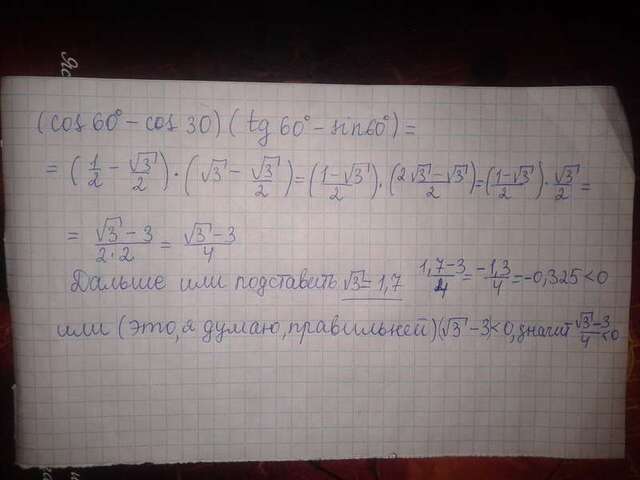 (cos 60° - cos 30) (tg 60° - sin 60°) =
= (1/2 - √3/2) · (√3 - √3/2) = (1-√3/2) · (2√3-√3/2) = (1-√3/2) · √3/2 =
= √3-3/2·2 = √3-3/4
Дальше или подставить √3=1,7 1,7-3/4 = -1,3/4 = -0,325<0
или (это, я думаю, правильней) (√3-3)<0, значит √3-3/4<0